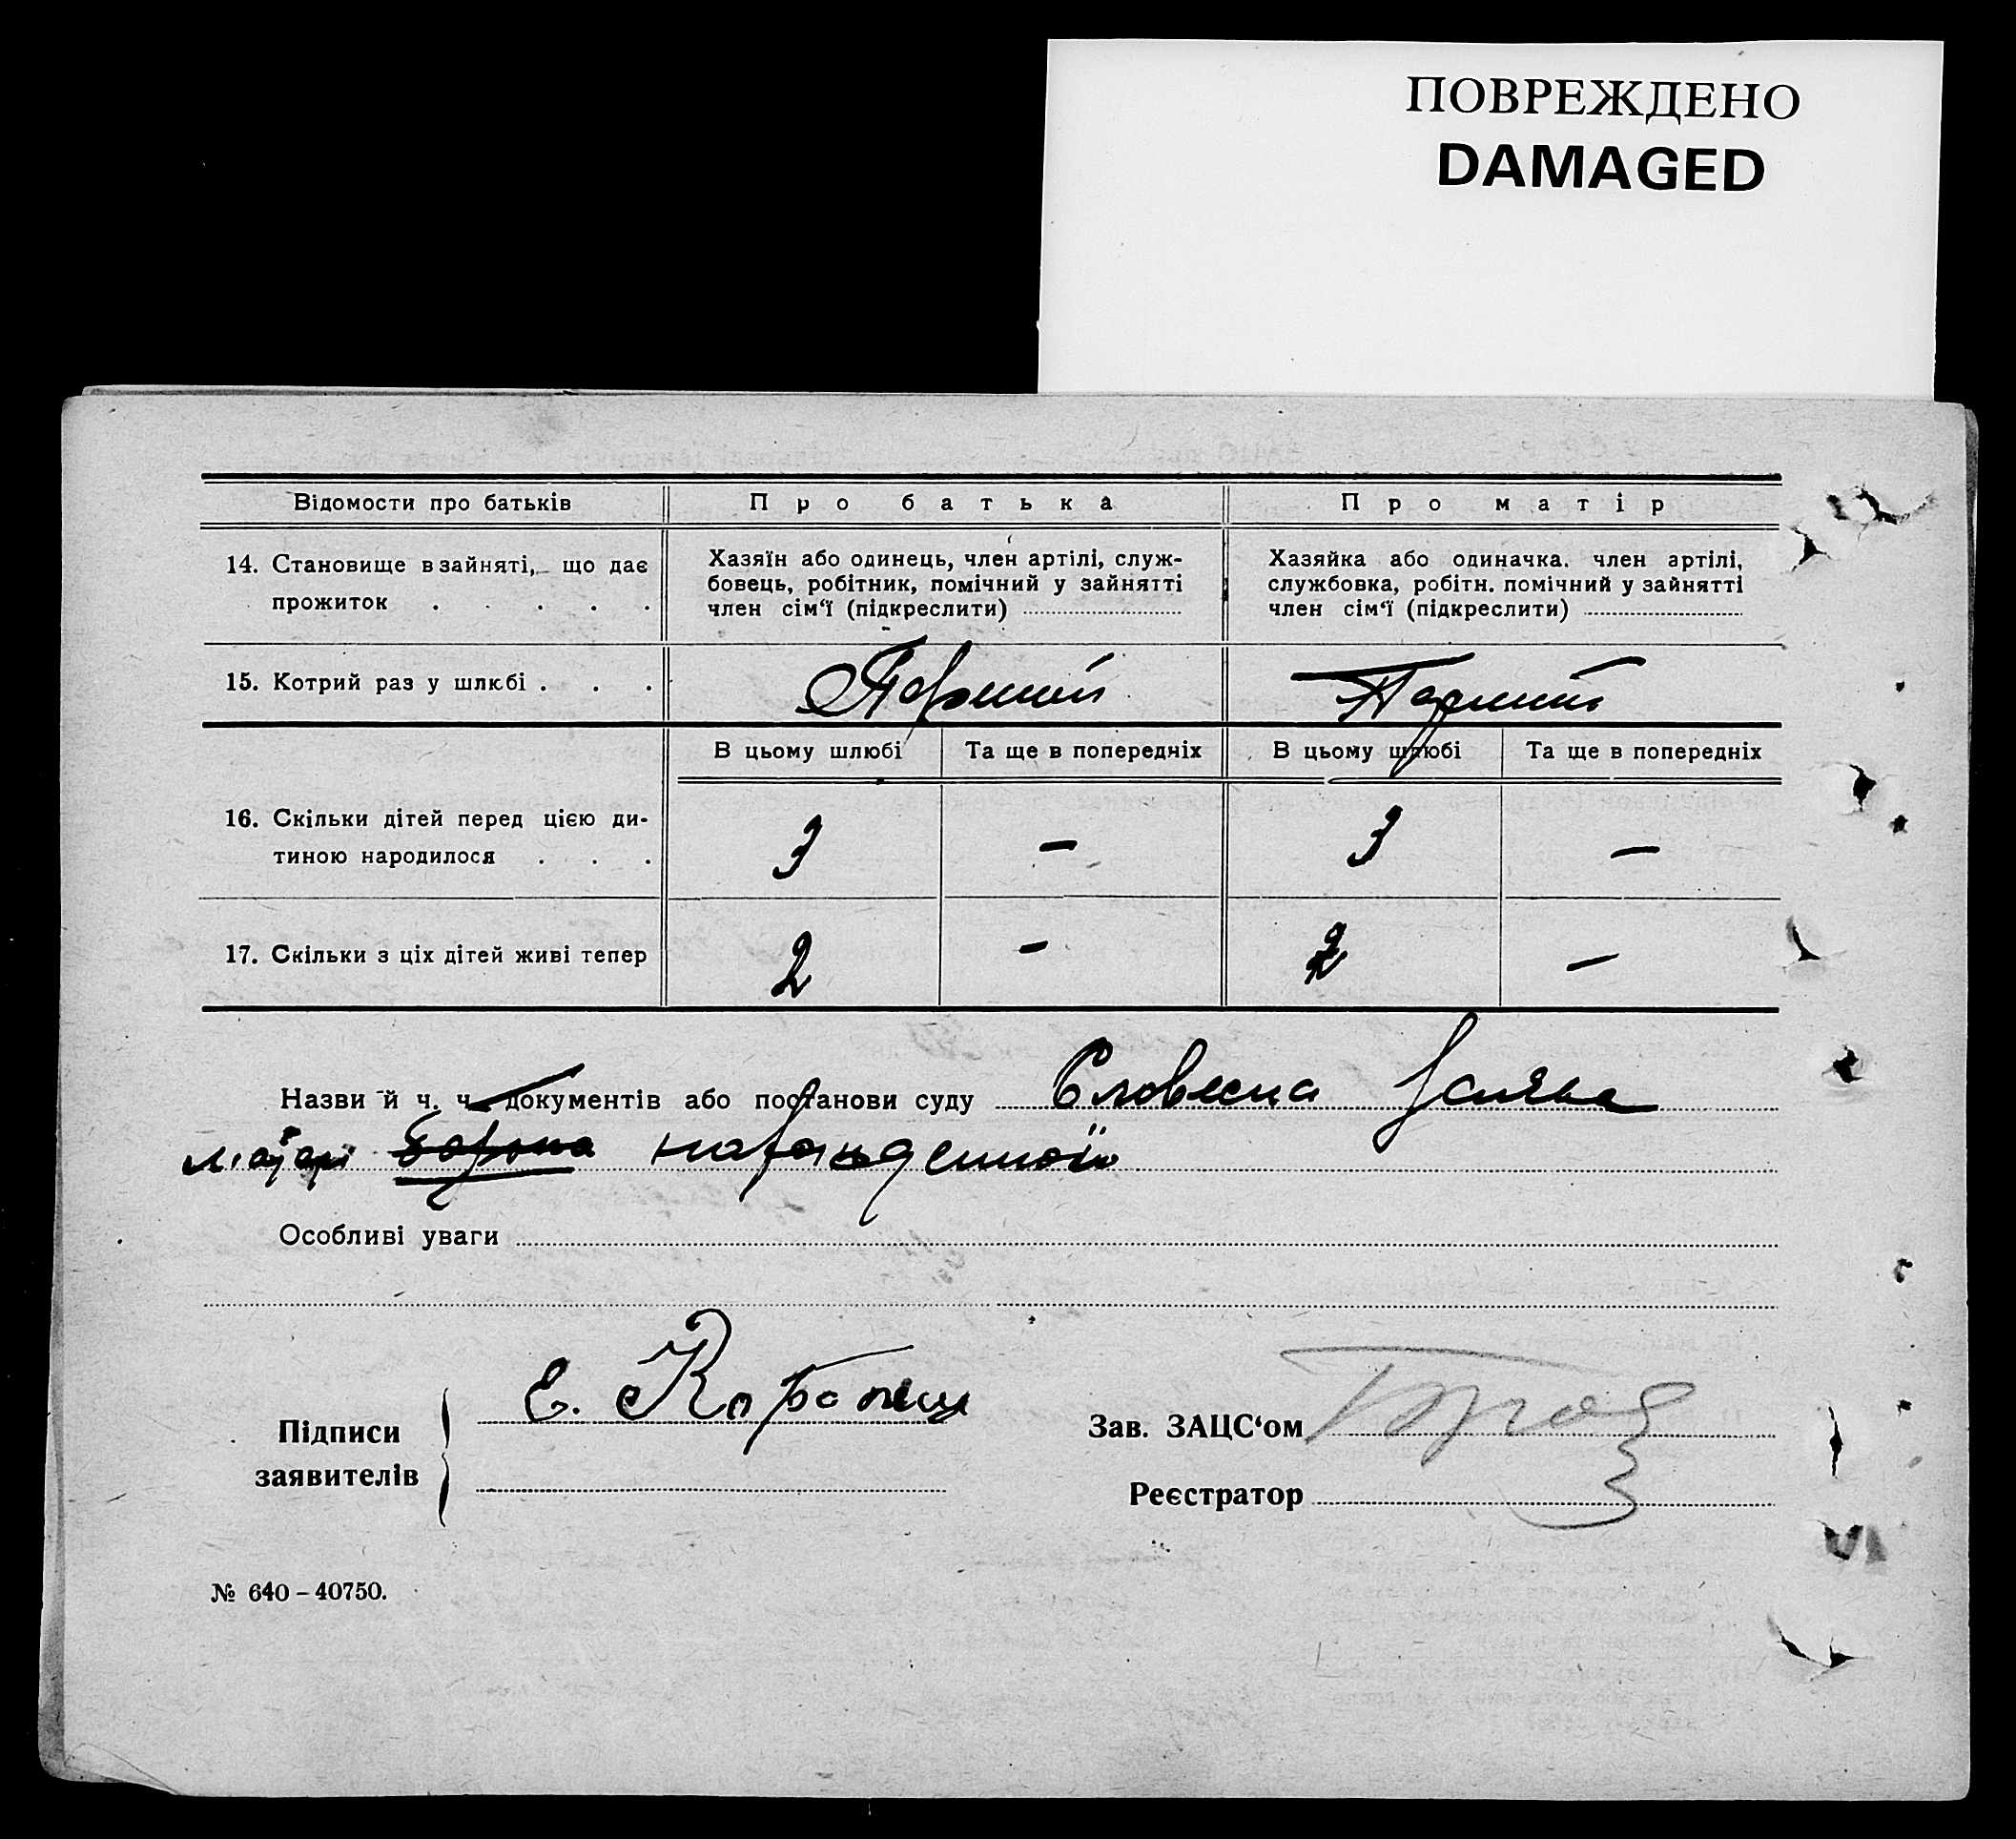 ПОВРЕЖДЕНО
DAMAGED
Відомости про батьків
Про батька
Про матір
14. Становище в зайняті, що дає
прожиток . . . . .
Хазяїн або одинець, член артілі, служ-
бовець, робітник, помічний у зайнятті
член сім‘ї (підкреслити)
Хазяйка або одиначка. член артілі,
службовка, робітн. помічний у зайнятті
член сім‘ї (підкреслити)
15. Котрий раз у шлюбі . . .
Перший
Перший
В цьому шлюбі
Та ще в попередніх
В цьому шлюбі
Та ще в попередніх
16. Скільки дітей перед цією ди-
тиною народилося . . .
3 — 3 —
17. Скільки з ціх дітей живі тепер
2 — 2 —
Назви й ч. ч. документів або постанови суду Словесна Заява
матері народженної
Особливі уваги
Підписи
заявителів
Е.
Зав. ЗАЦС‘ом
Реєстратор
№ 640 – 40750.